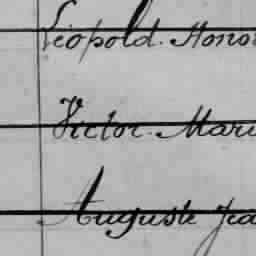 Léopold. Hono
Victor. Mari
Auguste Jea